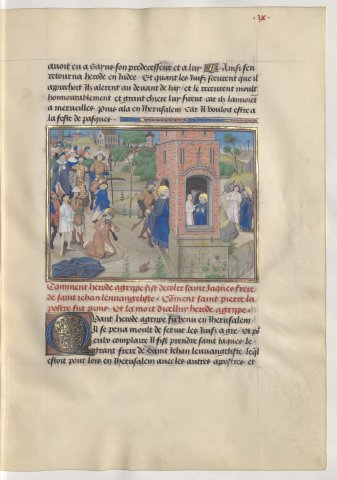 ·ix·
auoit eu a Gayus son predecesseur et a luy Ainsi sen
retourna herode en Iudee Et quant les Iuifz sceurent que il
aprouchoit Ilz alerent au deuant de luy et le receurent moult
honnourablement et grant chiere luy firent car ilz lamoiēt
a merueilles Puis ala en Iherusalem Car Il vouloit estre a
la feste de pasques
Comment herode agrippe fist decoler saint Iaques frere
de saint Iehan leuuangeliste Cōment saint pierre la
postre fut prins Et la mort dicelluy herode agrippe
Quant herode agrippe fu venu en Iherusalem
Il se pena moult de seruir les Iuifz a gre Et po
eulx complaire Il fist prendre saint Iaques le
grant frere de Saint Iehan leuuangeliste Leql
estoit pour lors en Iherusalem auec les autres apostres et